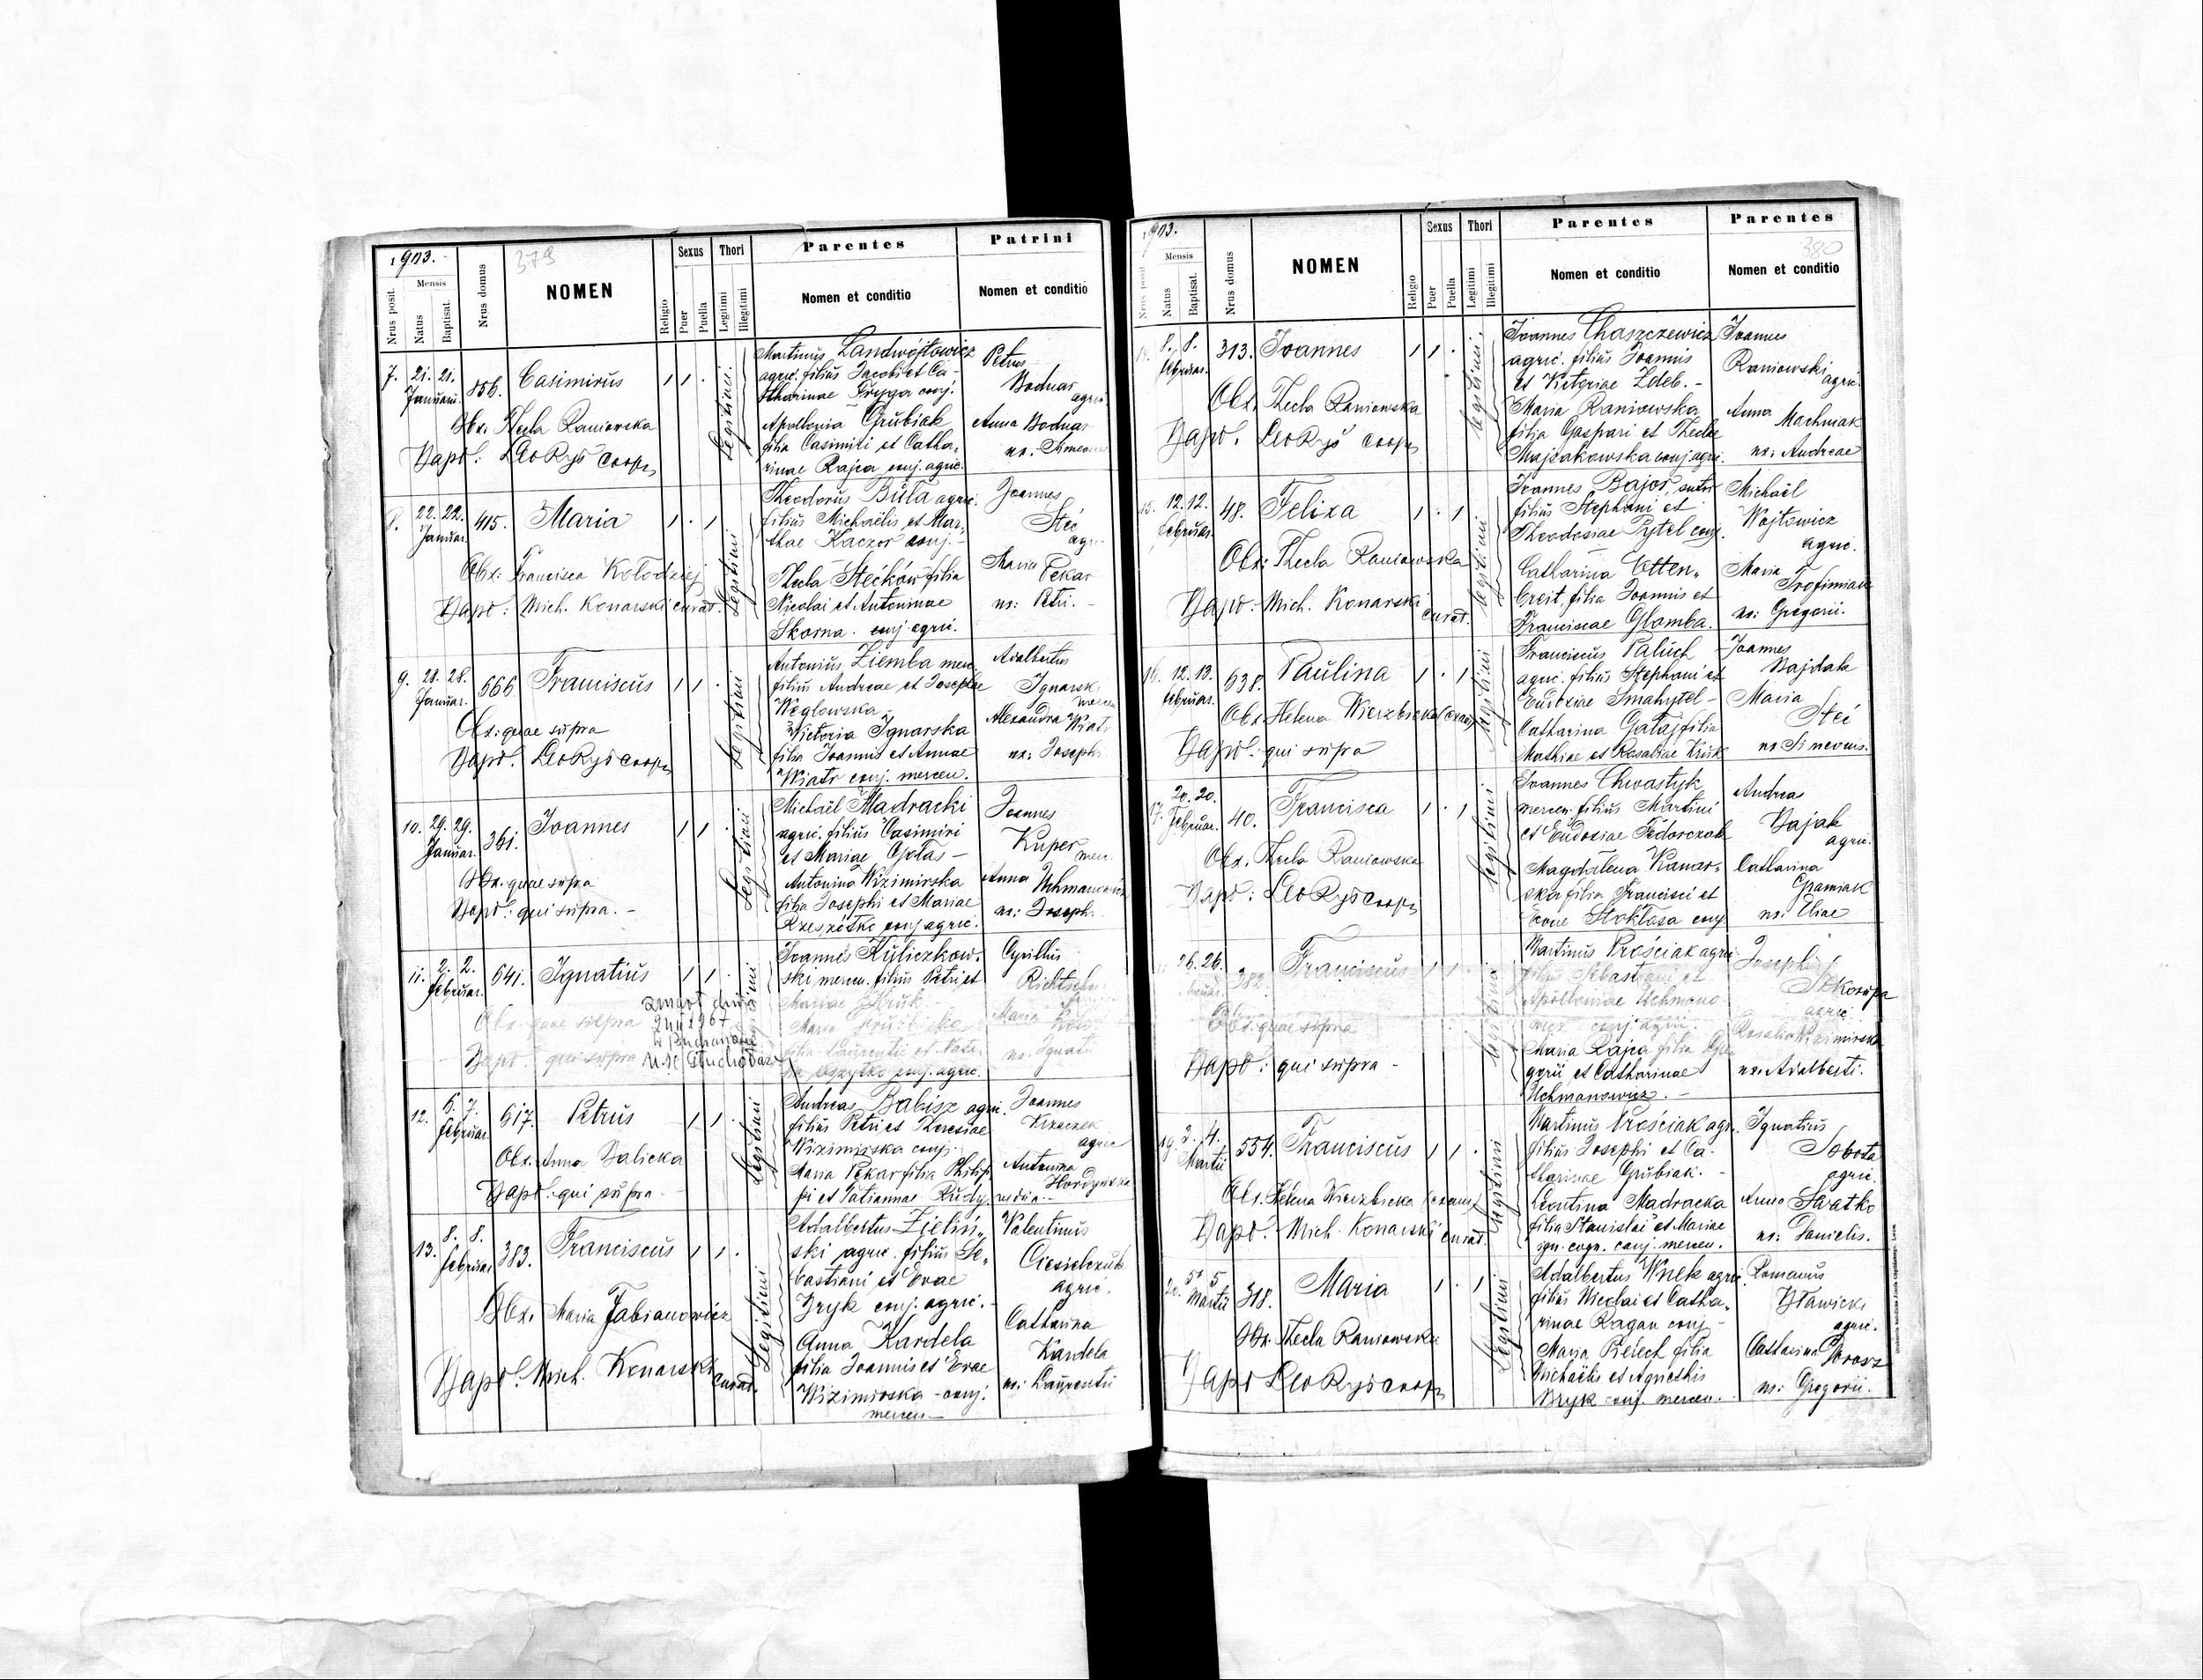 1903.
379
Nrus posit.
Mensis
Natus
Baptisat.
Nrus domus
NOMEN
Religio
Sexus
Puer
Puella
Thori
Legitimi
Illegitimi
Parentes
Nomen et conditio
Patrini
Nomen et conditio
7. 21. 21. Januari. 856. Casimirus
Obs. Thecla Raniowska
Bapt. Leo Ryś coop.
Legitimi
Martinus Landwójtowicz
agric. filius Jacobi et Ca-
tharinae Fryga conj.
Apollonia Grubiak
filia Casimiri et Catha-
rinae Rajca conj. agric.
Petrus
Bodnar
agric.
Anna Bodnar
ux. Simeonis
8. 22. 22. Januar. 415. Maria
Obs: Francisca Kołodziej
Bapt: Mich. Konarski curat.
Legitimi
Theodorus Buła agric.
filius Michaëlis et Mar-
thae Kaczor conj. -
Thecla Stećków filia
Nicolai et Antoninae
Skorna. conj. agric.
Joannes
Stec
agr.
Maria
Pekar
ux: Petri. -
9. 28. 28. Januar. 666 Franciscus
Obs: quae supra
Bapt. Leo Ryś coop.
Legitimi
Antonius Ziemba merc.
filius Andreae et Josephae
Węglowska -
Victoria Ignarska
filia Joannis et Annae
Wiatr conj. mercen.
Adalbertus
Ignarsk
mercen
Alexandra Wiatr
ux: Joseph.
10. 29. 29. Januar. 361. Joannes
Obs. quae supra
Bapt: qui supra. -
Legitimi
Michaël Madracki
agric. filius Casimiri
et Mariae Gołas -
Antonina Wizimirska
filia Josephi et Mariae
Rzeszótko conj. agric.
Joannes
Kuper
merc.
Anna Uchmanowicz
ux: Joseph.
11. 2. 2. Februar. 641. Ignatius
Obs. quae supra
Bapt. qui supra
zmarł dnia
1967
w
Legitimi
Joannes Kuliczkow-
ski mercen. filius Petri et
Mariae Struk. -
Maria
filia Laurentii et Nata-
conj. agric.
Cyrillus
Maria
ux. Ignatii
12. 6. 7. Februar. 617. Petrus
Obs. Anna Balicka
Bapt. qui supra -
Legitimi
Andreas Babisz agric.
filius Petri et Theresiae
Wizimirska conj.
Maria Pekar filia Philip-
pi et Tatiannae Rudy
Joannes
Krzaczek
agric
Antonina
Hordyńska
vidua. -
13. 8. 8. Februar 383. Franciscus
Obs. Maria Fabianowicz
Bapt. Mich. Konarski curat.
Legitimi
Adalbertus Zieliń-
ski agric. filius Se-
bastiani et Evae
Bryk conj. agric. -
Anna Kardela
filia Joannis et Evae
Wizimirska - conj.
mercen -
Valentinus
Ciesielczuk
agric.
Catharina
Kardela
ux: Laurentii
1903.
380
Nrus posit.
Mensis
Natus
Baptisat.
Nrus domus
NOMEN
Religio
Sexus
Puer
Puella
Thori
Legitimi
Illegitimi
Parentes
Nomen et conditio
Parentes
Nomen et conditio
14. 8. 8. Februar. 313. Joannes
Obs. Thecla Raniowska
Bapt. Leo Ryś coop.
Legitimi
Joannes Chaszczewicz
agric. filius Joannis
et Victoriae Zdeb. -
Maria Raniowska
filia Gaspari et Theclae
Majsakowska conj. agric.
Joannes
Raniowski
agric.
Anna
Machniak
ux: Andreae
15. 12. 12. Februar. 48. Felixa
Obs: Thecla Raniowska
Bapt: Mich. Konarski curat.
Legitimi
Joannes Bajor, sutor
filius Stephani et
Theodosiae Pytel conj.
Catharina Otten-
breit, filia Joannis et
Franciscae Glomba.
Michaël
Wojtowicz
agric.
Maria
Trofimiak
ux: Gregorii.
16. 12. 13. Februar. 638. Paulina
Obs. Helena Wierzbicka (exam)
Bapt. qui supra
Legitimi
Franciscus Paluch
agric. filius Stephani et
Eudoxiae Smahytel -
Catharina Gałaj filia
Mathiae et Rosaliae Kruk
Joannes
Bajdak
Maria
Stec
ux Simeonis.
17. 20. 20. Februar. 40. Francisca
Obs. Thecla Raniowska
Bapt: Leo Ryś coop.
Legitimi
Joannes Chwastyk
mercen. filius Martini
et Eudoxiae Fedorczak
Magdalena Kamor-
ska filia Francisci et
Evae Stokłosa conj
Andrea
Bajak
agric.
Catharina
Graniak
ux: Eliae
26. 26. 382. Franciscus
Obs. quae supra
Bapt: qui supra -
Martinus Prościak agric.
filius Sebastiani et
Apolloniae Uchmano-
wicz conj. agric.
Maria Rajca filia Gre-
gorii et Catharinae
Uchmanowicz. -
Josephus
Szkorupa
agric
Rosalia Wizimirska
ux. Adalberti.
19. 3. 4. Martii 554. Franciscus
Obs. Helena Wierzbicka (exam)
Bapt. - Mich. Konarski curat.
Legitimi
Martinus Prościak agr.
filius Josephi et Ca-
tharinae Grubiak. -
Leontina Madracka
filia Stanislai et Mariae
ign. cogn. conj. mercen.
Ignatius
Sobota
agric.
Anna Swatko
ux: Danielis.
20. 5. 5 Martii 318. Maria
Obs. Thecla Raniowska
Bapt Leo Ryś coop.
Legitimi
Adalbertus Wnek agric.
filius Nicolai et Catha-
rinae Ragan conj -
Maria Bielech filia
Michaëlis et Agnethis
Bryk conj. mercen.
Romanus
Bławicki
agric.
Catharina Jorosz
ux: Gregorii.